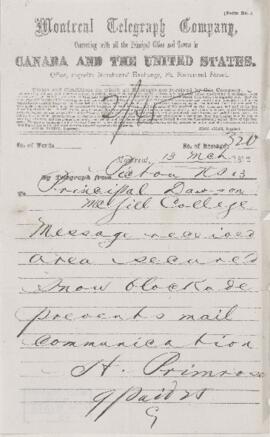 Montreal Telegraph Company,
Connecting with all the Principal Cities and Towns in
CANADA AND THE UNITED STATES.
Office, opposite Merchants' Exchange, St. Sacrament Street.
No. of Words
No. of Message 320
Montreal, 13 Mch
By Telegraph from Pictou NS 13
To Principal Dawson
McGill College
Message received
area secured
snow blockade
prevents mail
communication
H. Primrose
9 paid 25